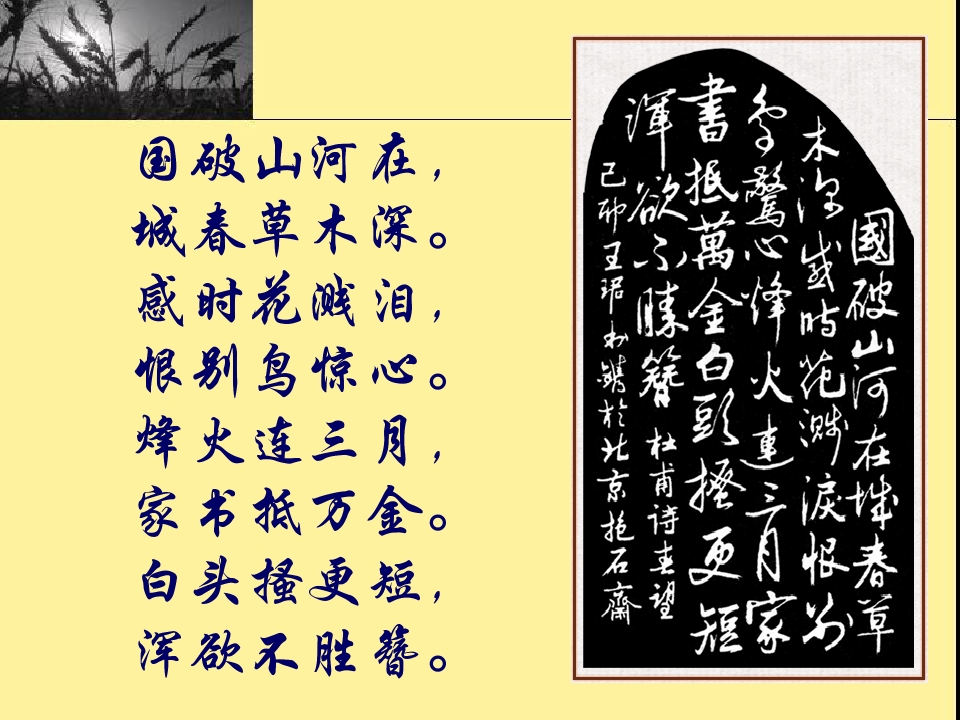 国破山河在，
城春草木深。
感时花溅泪，
恨别鸟惊心。
烽火连三月，
家书抵万金。
白头搔更短，
浑欲不胜簪。
國破山河在城春草
木深感時花濺淚恨別
鳥驚心烽火連三月家
書抵萬金白頭搔更短
渾欲不勝簪 杜甫詩春望
己卯王珺書鐫於北京抱石齋